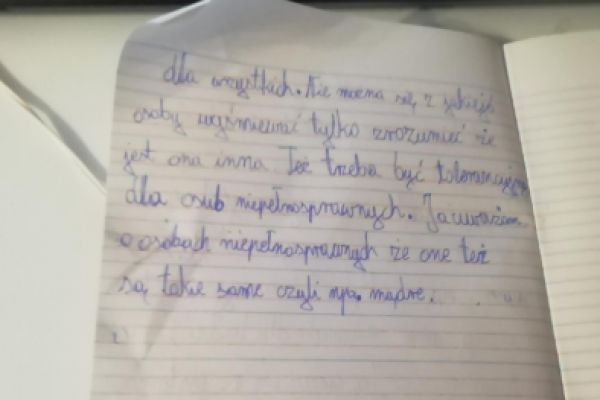 dla wszystkich. Nie mozna się z jakiejś
osoby wyśmiewać tylko zrozumieć że
jest ona inna. Też trzeba być
dla osub niepełnosprawnych. Ja uważam
o osobach niepełnosprawnych że one też
są takie same czyli np. mądre.